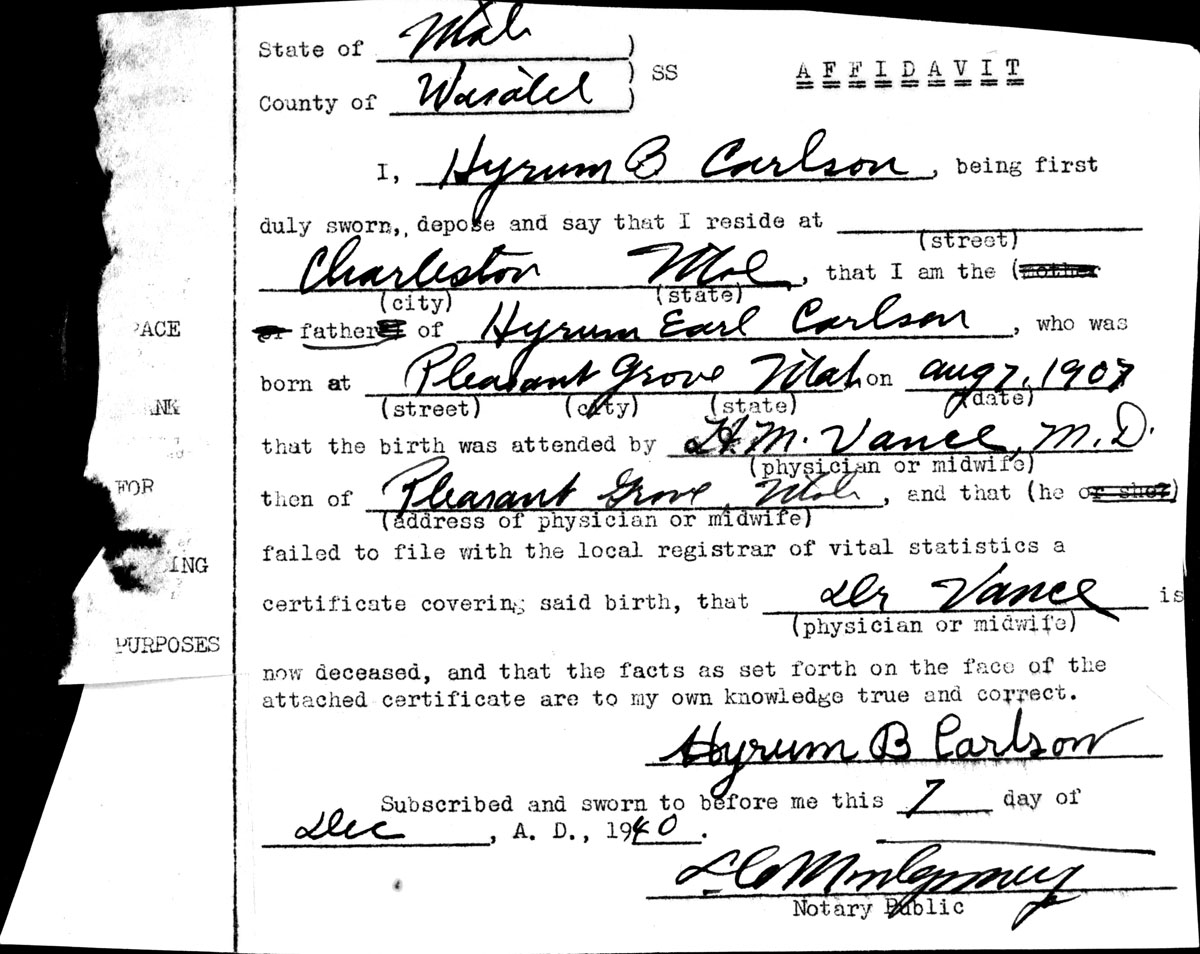 State of Utah )
) SS AFFIDAVIT
County of Wasatch )
I, Hyrum B Carlson, being first
duly sworn, depose and say that I reside at
(street)
Charleston Utah, that I am the (mother
(city) (state)
or father of Hyrum Earl Carlson, who was
born at Pleasant Grove Utah on Aug 7, 1907
(street) (city) (state) (date)
that the birth was attended by H. M. Vance, M.D.
(physician or midwife)
then of Pleasant Grove, Utah, and that (he or she)
(address of physician or midwife)
failed to file with the local registrar of vital statistics a
certificate covering said birth, that Dr Vance is
(physician or midwife)
now deceased, and that the facts as set forth on the face of the
attached certificate are to my own knowledge true and correct.
Hyrum B Carlson
Subscribed and sworn to before me this 7 day of
Dec, A. D., 1940.
Montgomery
Notary Public
PACE
ANK
FOR
ING
PURPOSES